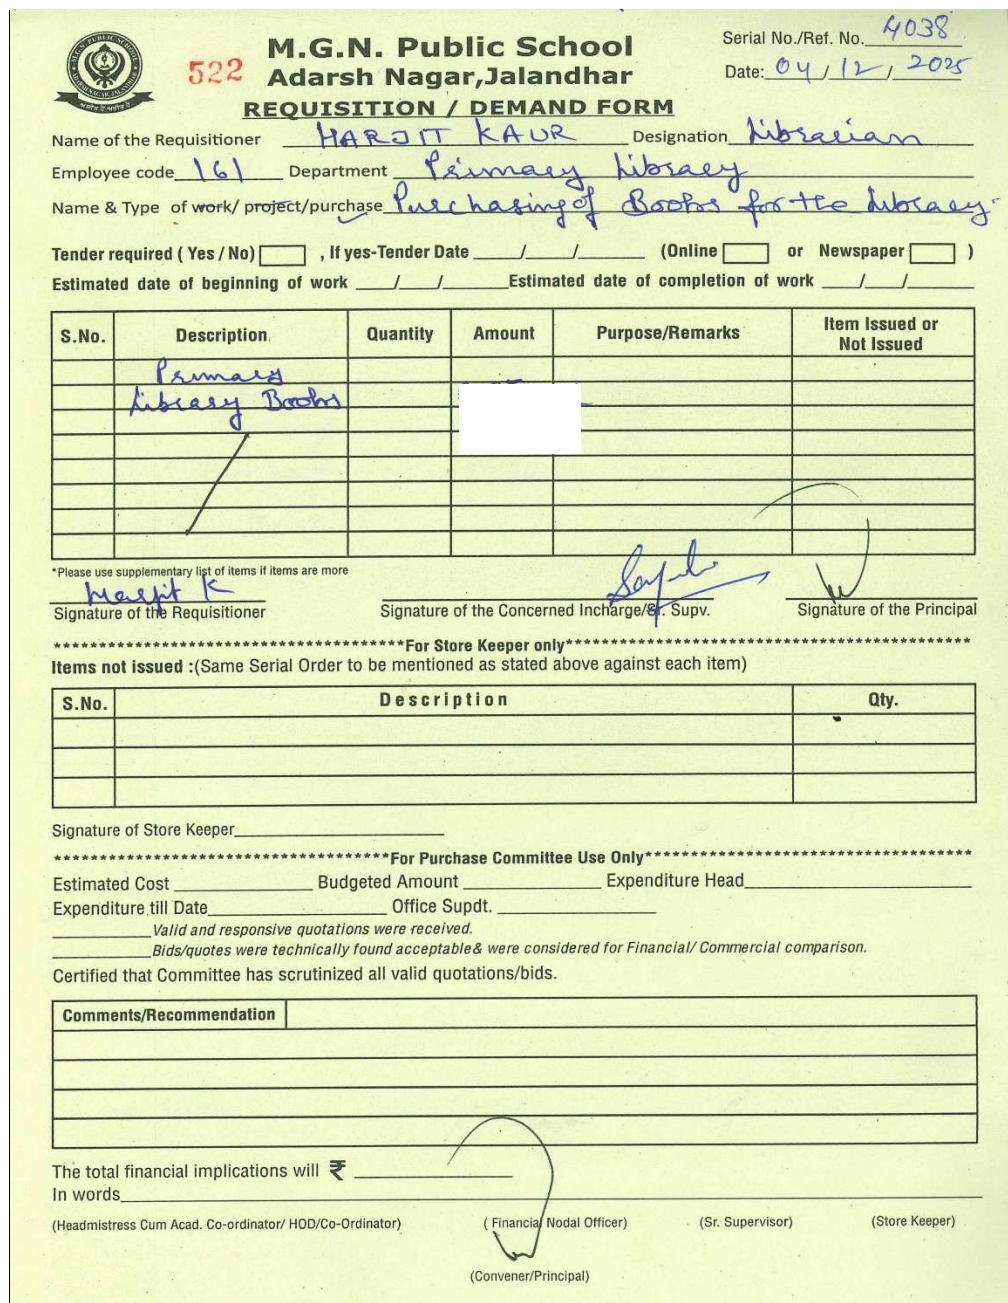 M.G.N. Public School
522
Adarsh Nagar,Jalandhar
REQUISITION / DEMAND FORM
Serial No./Ref. No. 4038
Date: 04 / 12 / 2025
Name of the Requisitioner HARJIT KAUR Designation Librarian
Employee code 161 Department Primary Library
Name & Type of work/ project/purchase Purchasing of Books for the Library.
Tender required ( Yes / No) , If yes-Tender Date ___/___/___ (Online or Newspaper )
Estimated date of beginning of work ___/___/___ Estimated date of completion of work ___/___/___
S.No. Description Quantity Amount Purpose/Remarks Item Issued or Not Issued
Primary
Library Books
*Please use supplementary list of items if items are more
Harjit K
Signature of the Requisitioner Signature of the Concerned Incharge/Sr. Supv. Signature of the Principal
**************************************For Store Keeper only**************************************
Items not issued :(Same Serial Order to be mentioned as stated above against each item)
S.No. Description Qty.
Signature of Store Keeper
************************************For Purchase Committee Use Only************************************
Estimated Cost Budgeted Amount Expenditure Head
Expenditure till Date Office Supdt.
Valid and responsive quotations were received.
Bids/quotes were technically found acceptable& were considered for Financial/ Commercial comparison.
Certified that Committee has scrutinized all valid quotations/bids.
Comments/Recommendation
The total financial implications will ₹
In words
(Headmistress Cum Acad. Co-ordinator/ HOD/Co-Ordinator) ( Financial Nodal Officer) (Sr. Supervisor) (Store Keeper)
(Convener/Principal)